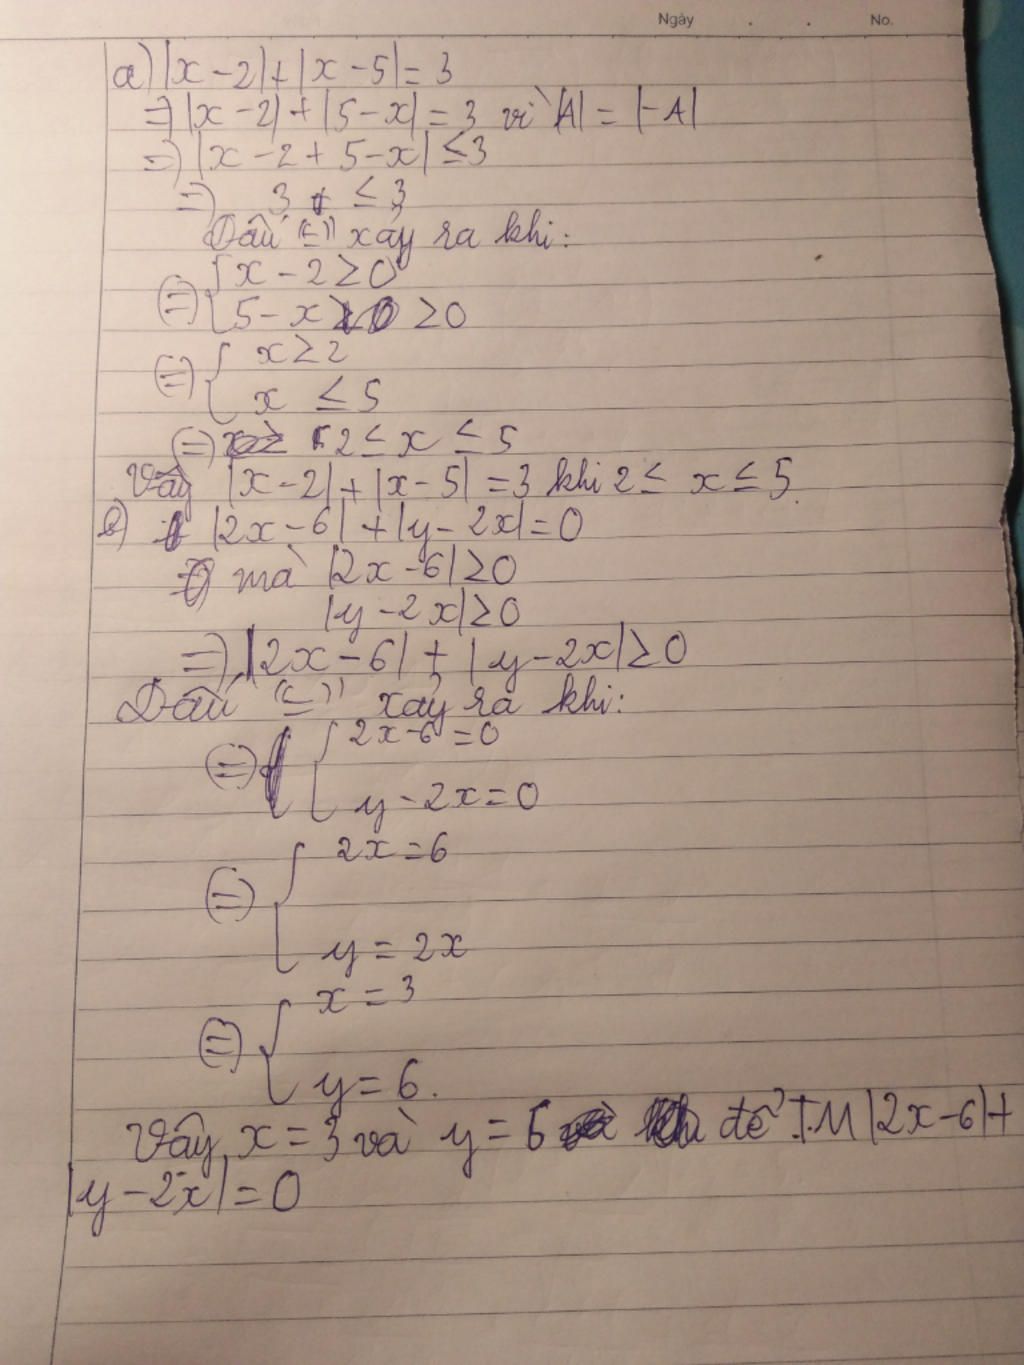 Ngày . . No.
a) |x - 2| + |x - 5| = 3
=> |x - 2| + |5 - x| = 3 vì |A| = |-A|
=> |x - 2 + 5 - x| ≤ 3
=> 3 ≤ 3
Dấu "=" xảy ra khi:
(=) { x - 2 ≥ 0
5 - x ≥ 0
(=) { x ≥ 2
x ≤ 5
(=) 2 ≤ x ≤ 5
Vậy |x - 2| + |x - 5| = 3 khi 2 ≤ x ≤ 5.
b) |2x - 6| + |y - 2x| = 0
mà |2x - 6| ≥ 0
|y - 2x| ≥ 0
=> |2x - 6| + |y - 2x| ≥ 0
Dấu "=" xảy ra khi:
(=) { 2x - 6 = 0
y - 2x = 0
(=) { 2x = 6
y = 2x
(=) { x = 3
y = 6.
Vậy x = 3 và y = 6 để T.M |2x - 6| +
|y - 2x| = 0